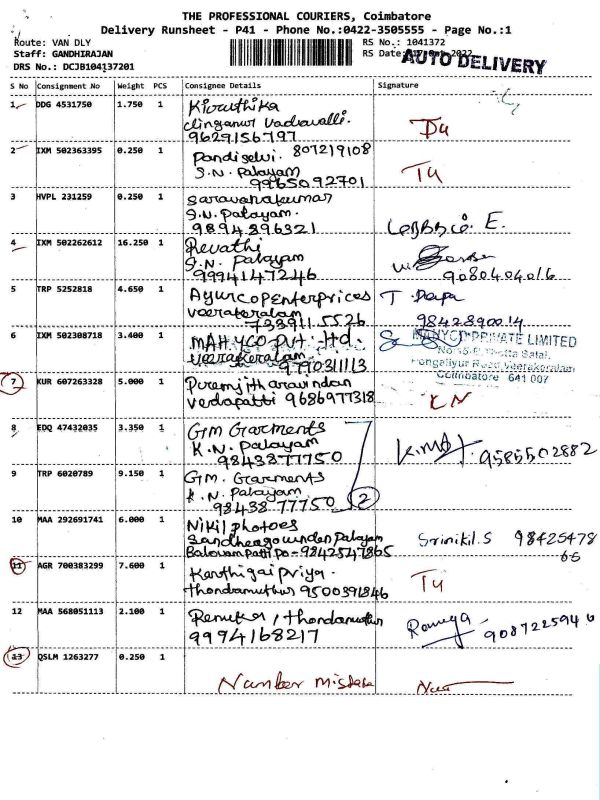 THE PROFESSIONAL COURIERS, Coimbatore
Delivery Runsheet - P41 - Phone No.:0422-3505555 - Page No.:1
Route: VAN DLY
Staff: GANDHIRAJAN
DRS No.: DCJB104137201
RS No.: 1041372
RS Date:
AUTO DELIVERY
S No Consignment No Weight PCS Consignee Details Signature
1 DDG 4531750 1.750 1 Kiruthika
Vadavalli.
9629156797
2 IXM 502363395 0.250 1 Pandiselvi. 807219108
S.N. Palayam
9965092701
3 HVPL 231259 0.250 1 Saravanakumar
S.N. Palayam.
9894896321
E.
4 IXM 502262612 16.250 1 Revathi
S.N. Palayam
9994147246
9080404016
5 TRP 5252818 4.650 1 Ayurcop Enterprices
Veerakeralam
7339115526
T. Papa
9842890014
6 IXM 502308718 3.400 1 MAHYCO Pvt. Ltd.
Veerakeralam
9790311113
PRIVATE LIMITED
Coimbatore 641 007
7 KUR 607263328 5.000 1 Puremjitharavindan
vedapatti 9686977318
8 EDQ 47432035 3.350 1 GM Garments
K.N. Palayam
9843877750
9585502882
9 TRP 6020789 9.150 1 GM. Garments
K.N. Palayam
98438 77750
2
10 MAA 292691741 6.000 1 Nikil photoes
Palayam
9842547865
Srinikil.S 98425478
65
11 AGR 700383299 7.600 1 Karthigaipriya.
thondamuthur 9500391846
12 MAA 568051113 2.100 1 Renuka, thondamuthur
9994168217
9087225946
13 QSLM 1263277 0.250 1
Number mistake